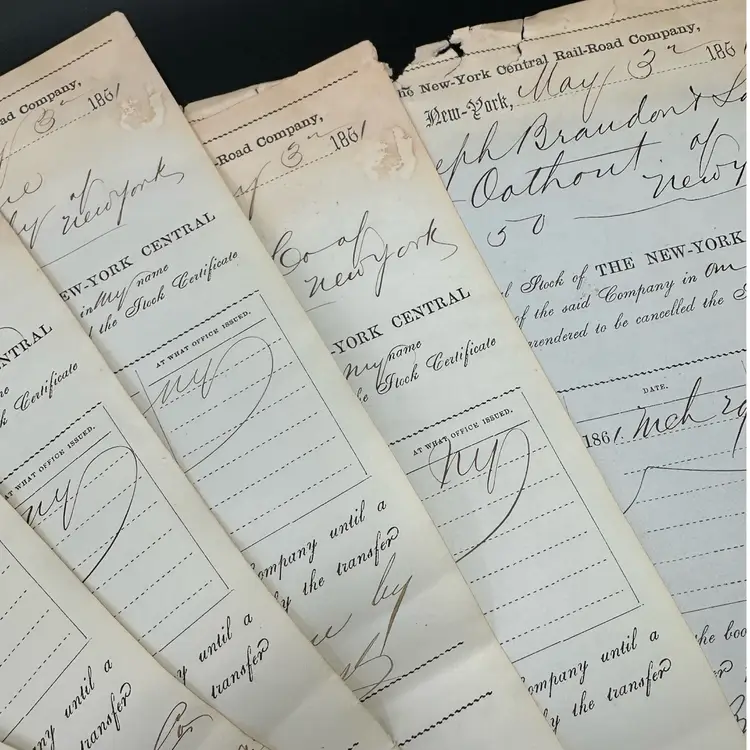 ad Company,
3d 1861
of
New York
EW-YORK CENTRAL
in my name
the Stock Certificate
AT WHAT OFFICE ISSUED.
NY
ompany until a
y the transfer
-Road Company,
3d 1861
Co of
New York
-YORK CENTRAL
my name
e Stock Certificate
AT WHAT OFFICE ISSUED.
NY
ompany until a
y the transfer
by
he New-York Central Rail-Road Company,
New-York, May 3d 186
eph Braudon &
Oothout of
New Y
50
l Stock of THE NEW-YORK
of the said Company in our
rrendered to be cancelled the S
DATE.
1861. Mch 29
ompany until a
y the transfer
the boo
NTRAL
k Certificate
AT WHAT OFFICE ISSUED.
NY
y until a
transfer
any until a
transfer